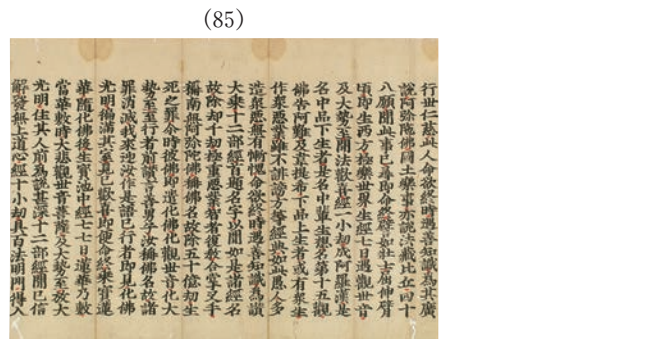 (85)
行世仁慈此人命欲終時遇善知識為其廣
說阿弥陀佛國土樂事亦說法藏比丘四十
八願聞此事已尋即命終譬如壯士屈伸臂
頃即生西方極樂世界生經七日遇觀世音
及大勢至聞法歡喜經一小劫成阿羅漢是
名中品下生者是名中輩生想名第十五觀
佛告阿難及韋提希下品上生者或有衆生
作衆惡業雖不誹謗方等經典如此愚人多
造衆惡無有慚愧命欲終時遇善知識為讚
大乘十二部經首題名字以聞如是諸經名
故除却千劫極重惡業智者復教合掌叉手
稱南無阿弥陀佛稱佛名故除五十億劫生
死之罪尒時彼佛即遣化佛化觀世音化大
勢至至行者前讚言善男子汝稱佛名故諸
罪消滅我來迎汝作是語已行者即見化佛
光明徧滿其室見已歡喜即便命終乘寶蓮
華隨化佛後生寶池中經七七日蓮華乃敷
當華敷時大悲觀世音菩薩及大勢至放大
光明住其人前為說甚深十二部經聞已信
解發無上道心經十小劫具百法明門得入